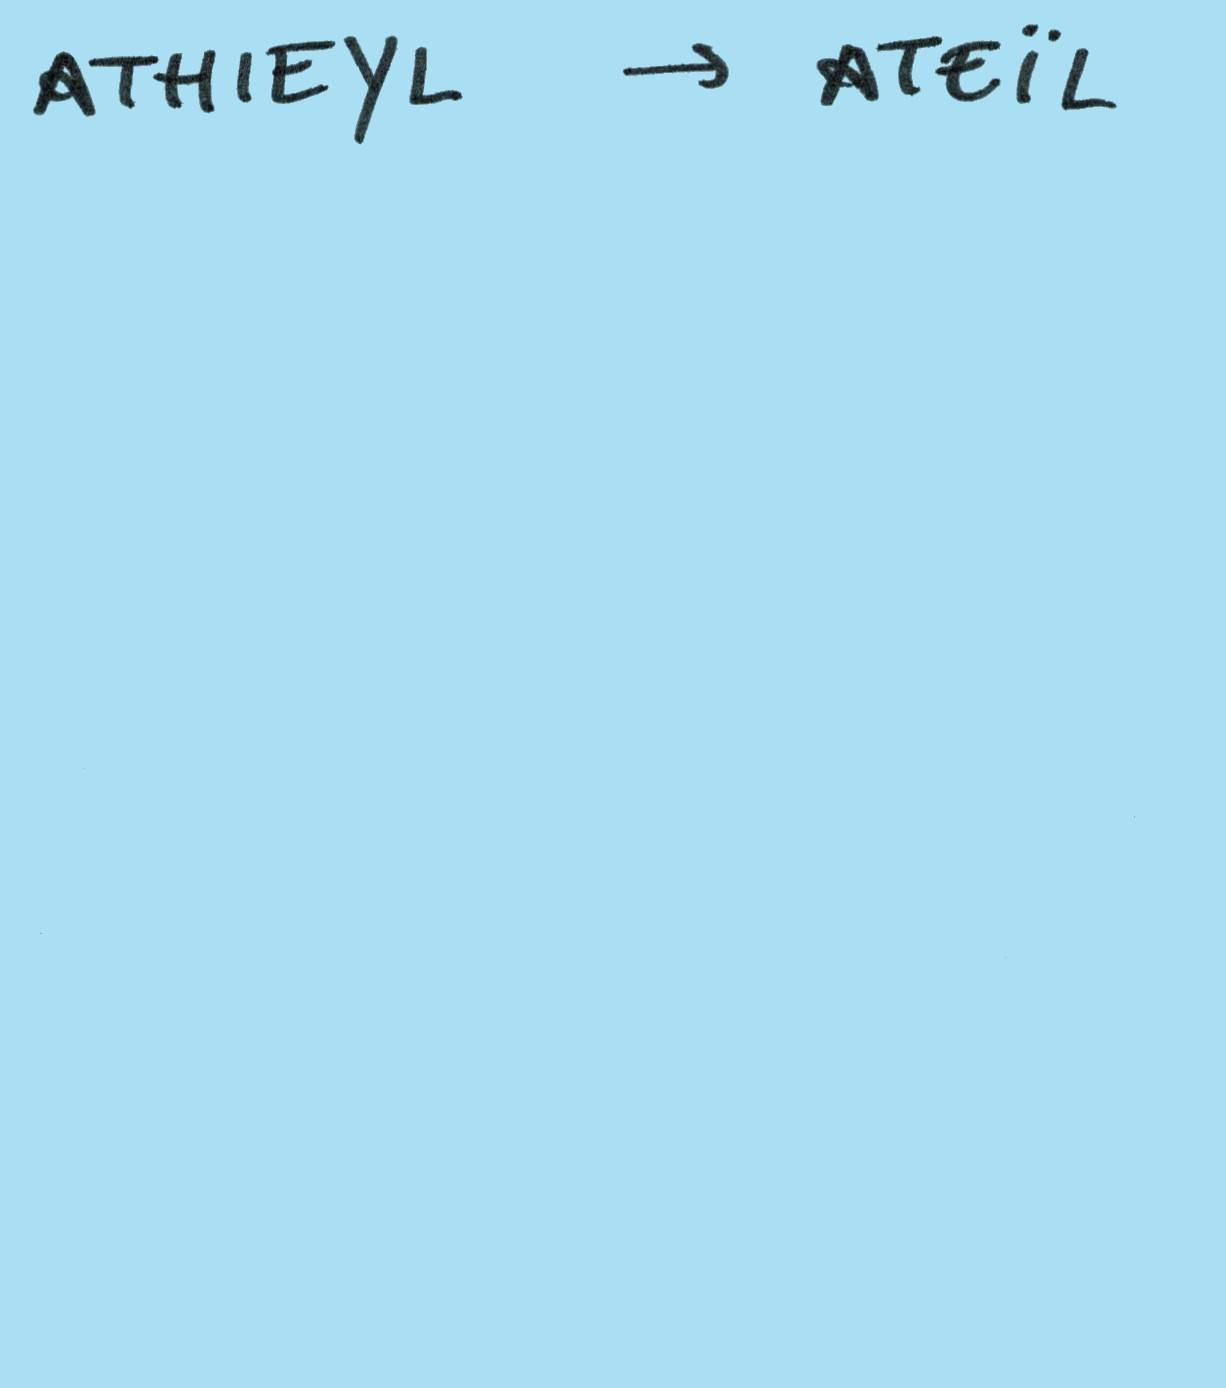 ATHIEYL → ATEÏL